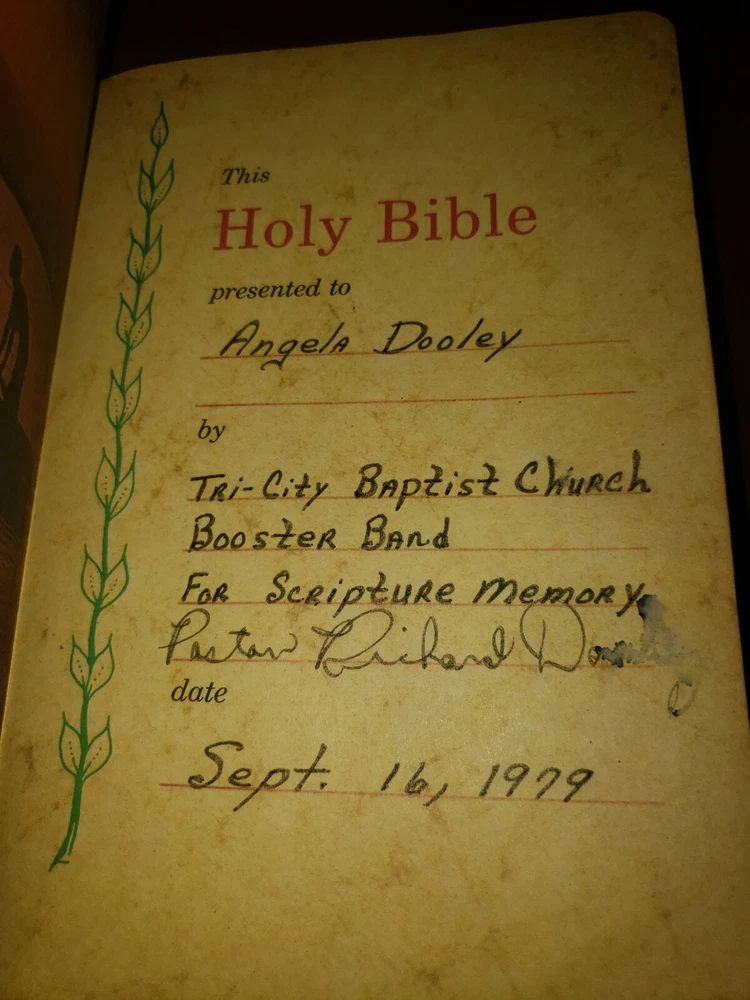 This
Holy Bible
presented to
Angela Dooley
by
Tri-City Baptist Church
Booster Band
For Scripture Memory
Pastor Richard
date
Sept. 16, 1979